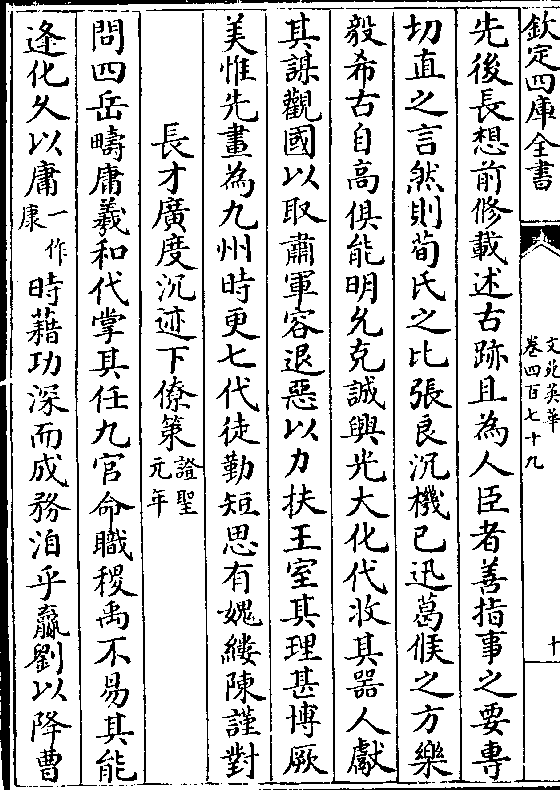 欽定四庫全書
文苑英華
卷四百七十九
十
先後長想前修載述古跡且為人臣者善指事之要專
切直之言然則荀氏之比張良沉機已迅葛侯之方樂
毅希古自高俱能明允克誠興光大化代收其器人獻
其謀觀國以取肅軍容退惡以力扶王室其理甚博厥
美惟先畫為九州時更七代徒勤短思有媿縷陳謹對
長才廣度沉迹下僚策證聖元年
問四岳疇庸羲和代掌其任九官命職稷禹不易其能
逢化久以庸一作康時藉功深而成務洎乎嬴劉以降曹